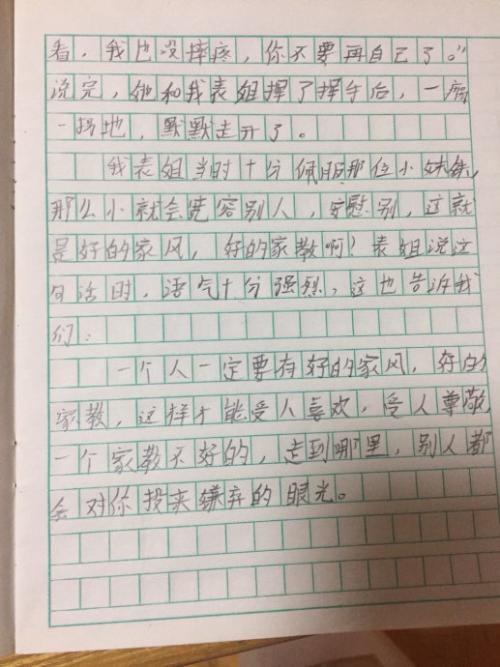 看，我也没摔疼，你不要再自己了。”
说完，他和我表姐挥了挥手后，一瘸
一拐地，默默走开了。
我表姐当时十分佩服那位小妹妹，
那么小就会宽容别人，安慰别，这就
是好的家风，好的家教啊！表姐说这
句话时，语气十分强烈，这也告诉我
们：
一个人一定要有好的家风，好的
家教，这样才能受人喜欢，受人尊敬
一个家教不好的，走到哪里，别人都
会对你投来嫌弃的眼光。